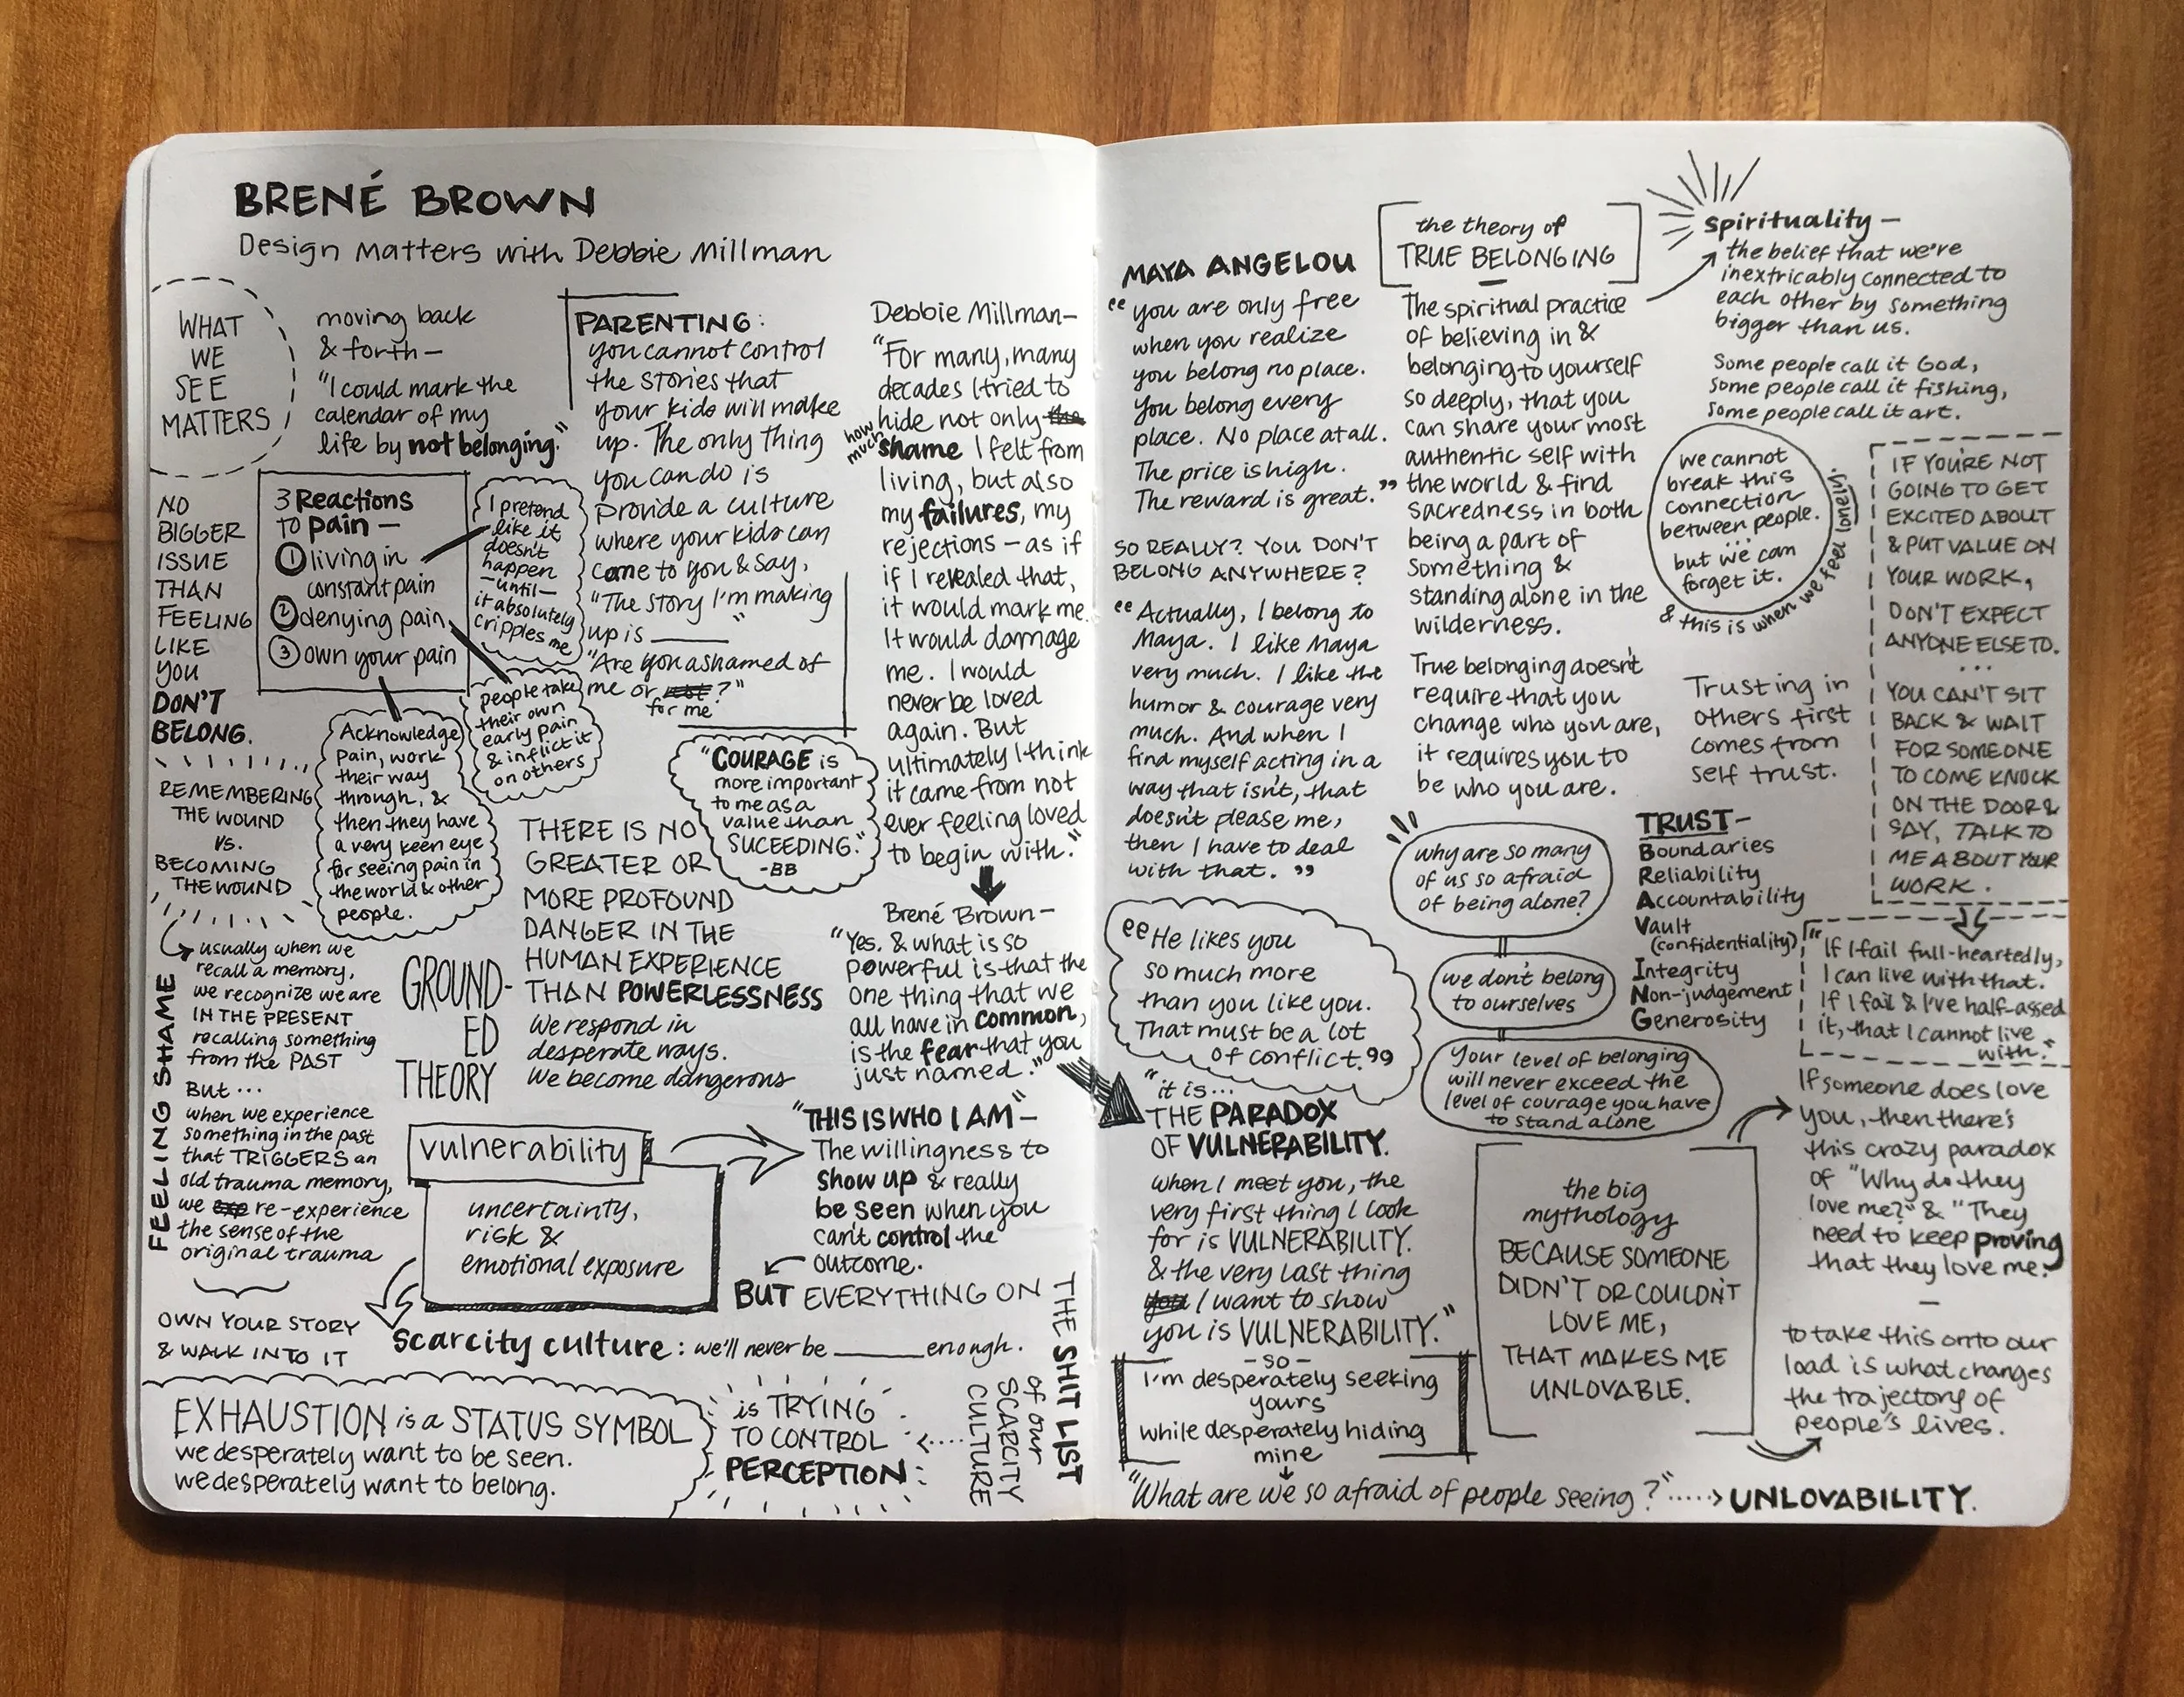 BRENÉ BROWN
Design Matters with Debbie Millman
WHAT
WE
SEE
MATTERS
moving back
& forth —
"I could mark the
calendar of my
life by not belonging."
NO
BIGGER
ISSUE
THAN
FEELING
LIKE
YOU
DON'T
BELONG.
REMEMBERING
THE WOUND
vs.
BECOMING
THE WOUND
3 Reactions
to pain —
1 living in
constant pain
2 denying pain
3 own your pain
I pretend
like it
doesn't
happen
—until—
it absolutely
cripples me
people take
their own
early pain
& inflict it
on others
Acknowledge
pain, work
their way
through, &
then they have
a very keen eye
for seeing pain in
the world & other
people.
PARENTING:
you cannot control
the stories that
your kids will make
up. The only thing
you can do is
provide a culture
where your kids can
come to you & say,
"The story I'm making
up is ______"
"Are you ashamed of
me or for me?"
Debbie Millman—
"For many, many
decades I tried to
hide not only the
how much shame I felt from
living, but also
my failures, my
rejections — as if
if I revealed that,
it would mark me.
It would damage
me. I would
never be loved
again. But
ultimately I think
it came from not
ever feeling loved
to begin with."
"COURAGE is
more important
to me as a
value than
SUCEEDING."
-BB
Brené Brown—
"Yes. & what is so
powerful is that the
one thing that we
all have in common,
is the fear that you
just named."
FEELING SHAME
usually when we
recall a memory,
we recognize we are
IN THE PRESENT
recalling something
from the PAST
But...
when we experience
something in the past
that TRIGGERS an
old trauma memory,
we re-experience
the sense of the
original trauma
OWN YOUR STORY
& WALK INTO IT
GROUND-
ED
THEORY
THERE IS NO
GREATER OR
MORE PROFOUND
DANGER IN THE
HUMAN EXPERIENCE
THAN POWERLESSNESS
We respond in
desperate ways.
We become dangerous
vulnerability
uncertainty,
risk &
emotional exposure
"THIS IS WHO I AM"—
The willingness to
show up & really
be seen when you
can't control the
outcome.
BUT EVERYTHING ON
THE SHIT LIST
of our
SCARCITY
CULTURE
is TRYING
TO CONTROL
PERCEPTION
Scarcity culture: we'll never be ______ enough.
EXHAUSTION is a STATUS SYMBOL
we desperately want to be seen.
we desperately want to belong.
MAYA ANGELOU
"you are only free
when you realize
you belong no place.
You belong every
place. No place at all.
The price is high.
The reward is great."
SO REALLY? YOU DON'T
BELONG ANYWHERE?
"Actually, I belong to
Maya. I like Maya
very much. I like the
humor & courage very
much. And when I
find myself acting in a
way that isn't, that
doesn't please me,
then I have to deal
with that."
"He likes you
so much more
than you like you.
That must be a lot
of conflict."
"it is...
THE PARADOX
OF VULNERABILITY.
when I meet you, the
very first thing I look
for is VULNERABILITY.
& the very last thing
you I want to show
you is VULNERABILITY."
—so—
I'm desperately seeking
yours
while desperately hiding
mine
"What are we so afraid of people seeing?".....> UNLOVABILITY.
the theory of
TRUE BELONGING
The spiritual practice
of believing in &
belonging to yourself
so deeply, that you
can share your most
authentic self with
the world & find
sacredness in both
being a part of
something &
standing alone in the
wilderness.
True belonging doesn't
require that you
change who you are,
it requires you to
be who you are.
why are so many
of us so afraid
of being alone?
we don't belong
to ourselves
Your level of belonging
will never exceed the
level of courage you have
to stand alone
the big
mythology
BECAUSE SOMEONE
DIDN'T OR COULDN'T
LOVE ME,
THAT MAKES ME
UNLOVABLE.
Spirituality —
the belief that we're
inextricably connected to
each other by something
bigger than us.
Some people call it God,
some people call it fishing,
some people call it art.
we cannot
break this
connection
between people.
...
but we can
forget it.
& this is when we feel lonely.
Trusting in
others first
comes from
self trust.
TRUST—
Boundaries
Reliability
Accountability
Vault
(confidentiality)
Integrity
Non-judgement
Generosity
IF YOU'RE NOT
GOING TO GET
EXCITED ABOUT
& PUT VALUE ON
YOUR WORK,
DON'T EXPECT
ANYONE ELSE TO.
...
YOU CAN'T SIT
BACK & WAIT
FOR SOMEONE
TO COME KNOCK
ON THE DOOR &
SAY, TALK TO
ME ABOUT YOUR
WORK.
"If I fail full-heartedly,
I can live with that.
If I fail & I've half-assed
it, that I cannot live
with."
If someone does love
you, then there's
this crazy paradox
of "Why do they
love me?" & "They
need to keep proving
that they love me."
—
to take this onto our
load is what changes
the trajectory of
people's lives.